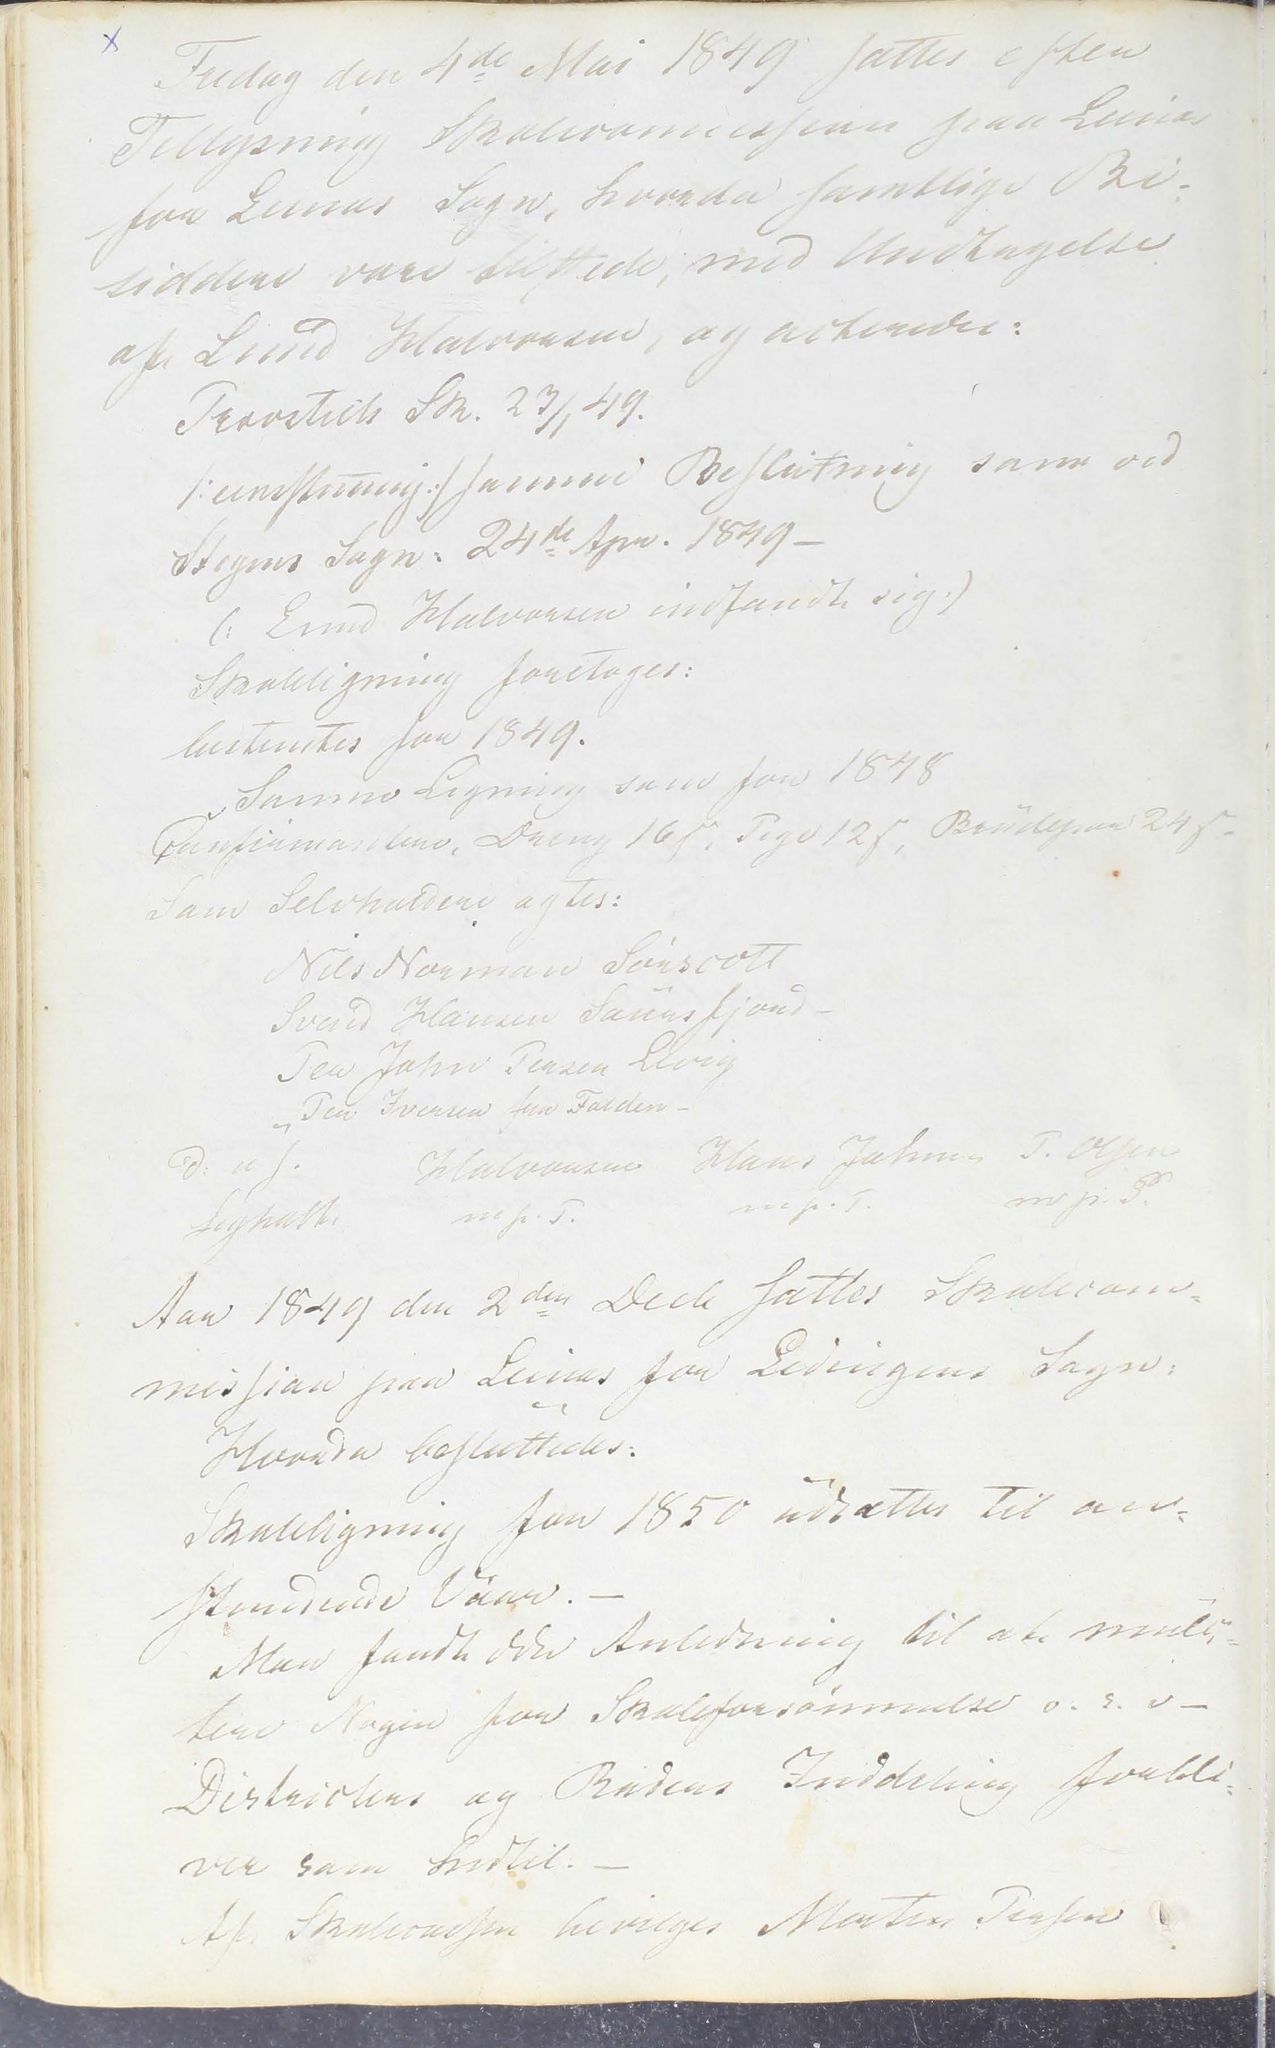 Fredag den 4de Mai 1849 sattes efter
Tillysning Skolecommission paa Leinæs
for Leinæs Sogn, hvorda samtlige Bi-
siddere vare tilstede, med Undtagelse
af Halvorsen, og
Provstich Sk. 23/1 49.
/: eenstemig :/ samme Beslutning som ved
Stegens Sogn: 24de Apr. 1849 –
(: Halvorsen indfandt sig :)
Skoleligning foretoges:
for 1849.
Samme Ligning som for 1848
Confirmandere, Dreng 16 s, Pige 12 s, Brudepar 24 s.
Som Selvholdere agtes:
Nils Norman Sörscott
Svend Hansen Saursfjord –
Peu John Persen
Per Iversen fra Folden –
D. u s.
Halvorsen Hans Johns T. Olsen
m p. T. m p. T. m p. P.
Aar 1849 den 2den Decb sattes Skolecom-
mission paa Leinæs for Ledingens Sogn:
Hvorda besluttedes:
Skoleligning for 1850 udsættes til an-
stundende Vaar. –
Man fandt ikke Anledning til at mulc-
tere Nogen for Skoleforsömmelse o. s. v –
Districters og Rodens Inddeling forbli-
ver som hidtil. –
Af Skolecassen bevilges Morten Persen